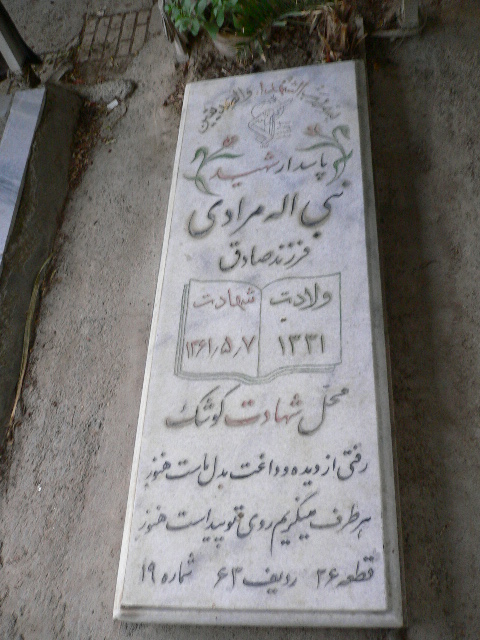 بسم رب الشهداء والصدیقین
پاسدار شهید
نبی اله مرادی
فرزند صادق
ولادت شهادت
۱۳۳۱ ۱۳۶۱٫۵٫۷
محل شهادت کوشک
رفتی از دیده و داغت بدل مات هنوز
هر طرف میگریم روی تو پیداست هنوز
قطعه ۲۶ ردیف ۶۳ شماره ۱۹